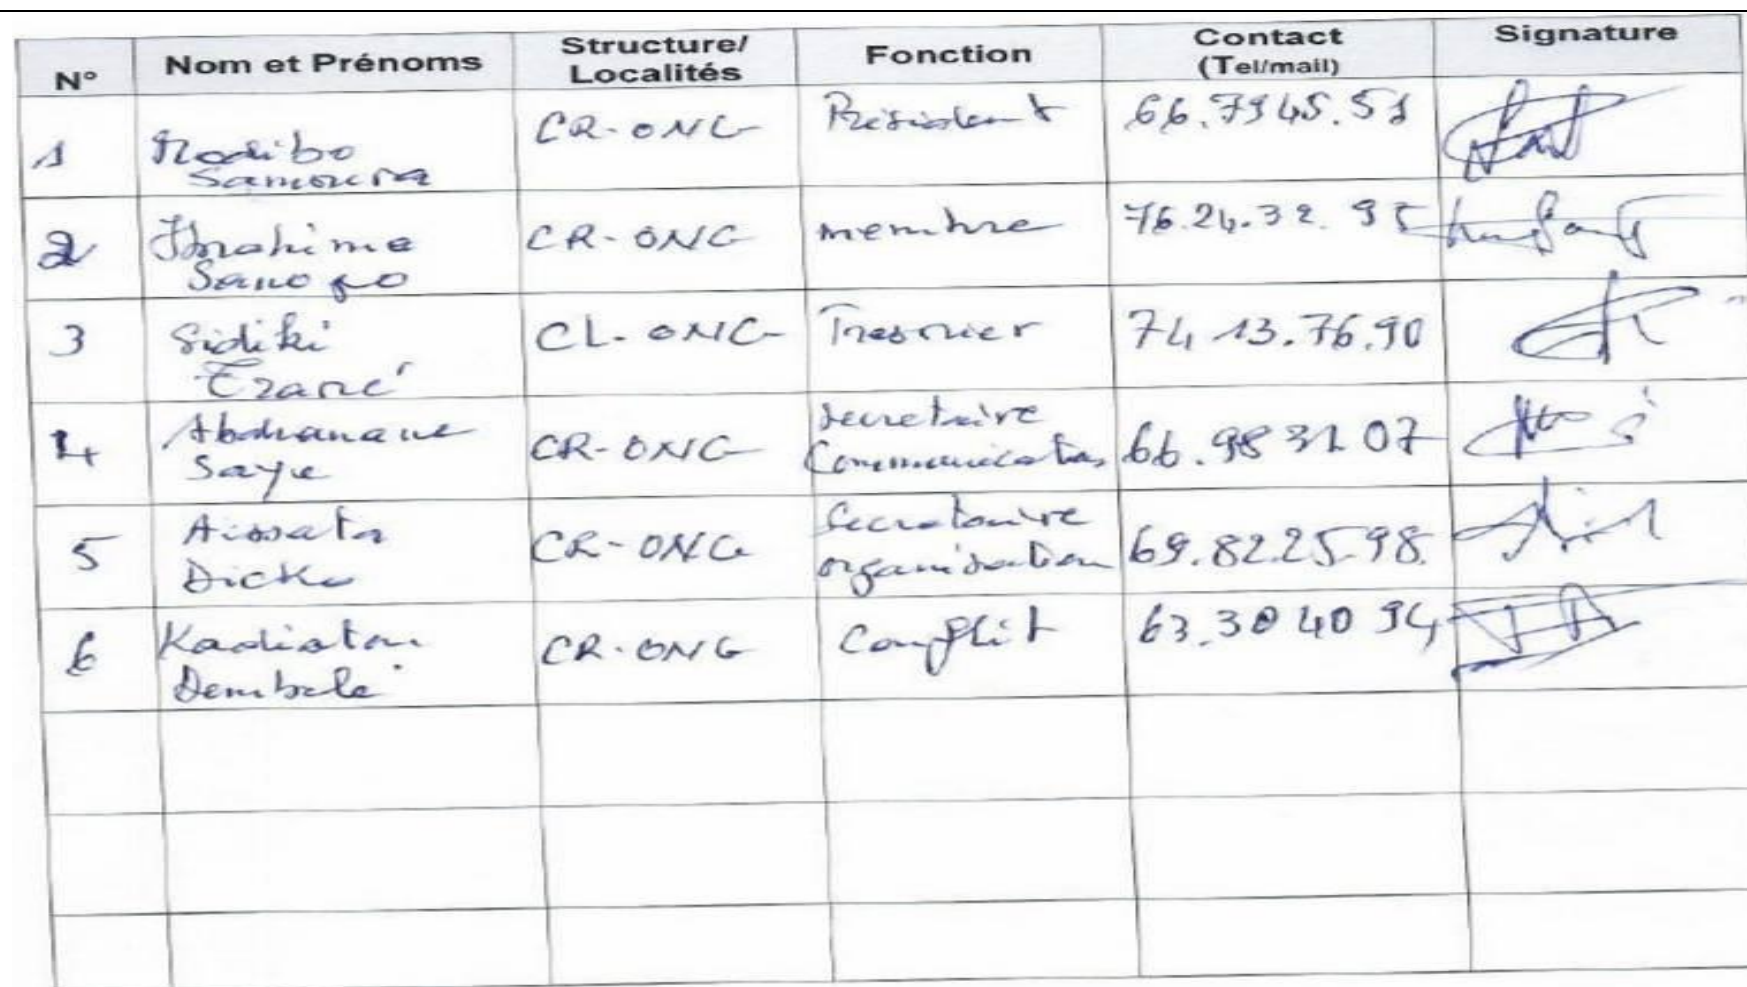 N° Nom et Prénoms Structure/ Localités Fonction Contact (Tel/mail) Signature
1 Modibo Samoura CR-ONG Président 66.79 45.51
2 Ibrahima Sanogo CR-ONG membre 76.24.32.95
3 Sidiki Traoré CL-ONG Tresorier 74 13.76.90
4 Abdramane Saye CR-ONG secretaire Communication 66.98 31 07
5 Aissata Dicko CR-ONG Secretaire organisation 69.82.25.98.
6 Kadiatou Dembelé CR-ONG Conflit 63.30 40 94